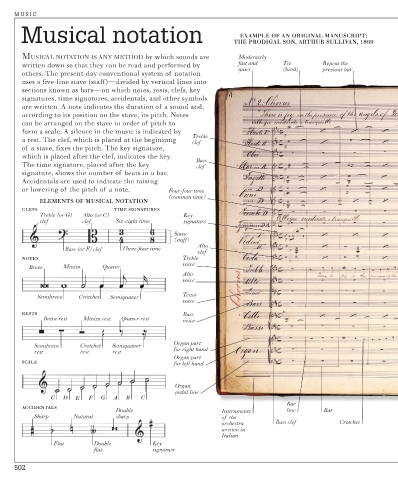 MUSIC
Musical notation
MUSICAL NOTATION IS ANY METHOD by which sounds are
written down so that they can be read and performed by
others. The present-day conventional system of notation
uses a five-line stave (staff)—divided by vertical lines into
sections known as bars—on which notes, rests, clefs, key
signatures, time signatures, accidentals, and other symbols
are written. A note indicates the duration of sound and,
according to its position on the stave, its pitch. Notes
can be arranged on the stave in order of pitch to
form a scale. A silence in the music is indicated by
a rest. The clef, which is placed at the beginning
of a stave, fixes the pitch. The key signature,
which is placed after the clef, indicates the key.
The time signature, placed after the key
signature, shows the number of beats in a bar.
Accidentals are used to indicate the raising
or lowering of the pitch of a note.
ELEMENTS OF MUSICAL NOTATION
CLEFS
TIME SIGNATURES
Treble (or G)
clef
Alto (or C)
clef
Six-eight time
Bass (or F) clef
Three-four time
Stave
(staff)
NOTES
Breve
Minim
Quaver
Semibreve
Crotchet
Semiquaver
RESTS
Breve rest
Minim rest
Quaver rest
Semibreve
rest
Crotchet
rest
Semiquaver
rest
SCALE
C D E F G A B C
ACCIDENTALS
Sharp
Natural
Double
sharp
Flat
Double
flat
Key
signature
EXAMPLE OF AN ORIGINAL MANUSCRIPT:
THE PRODIGAL SON, ARTHUR SULLIVAN, 1869
Moderately
fast and
quiet
Tie
(bind)
Repeat the
previous bar
Treble
clef
Bass
clef
Four-four time
(common time)
Key
signature
Alto
clef
Treble
voice
Alto
voice
Tenor
voice
Bass
voice
Organ part
for right hand
Organ part
for left hand
Organ
pedal line
Instruments
of the
orchestra
written in
Italian
Bass clef
Bar
line
Bar
Crotchet
Nº 2. Chorus
There is joy in the presence of the angels of
Viola
Alto
Bass
Cello
Basso
Organ
Chorus
502